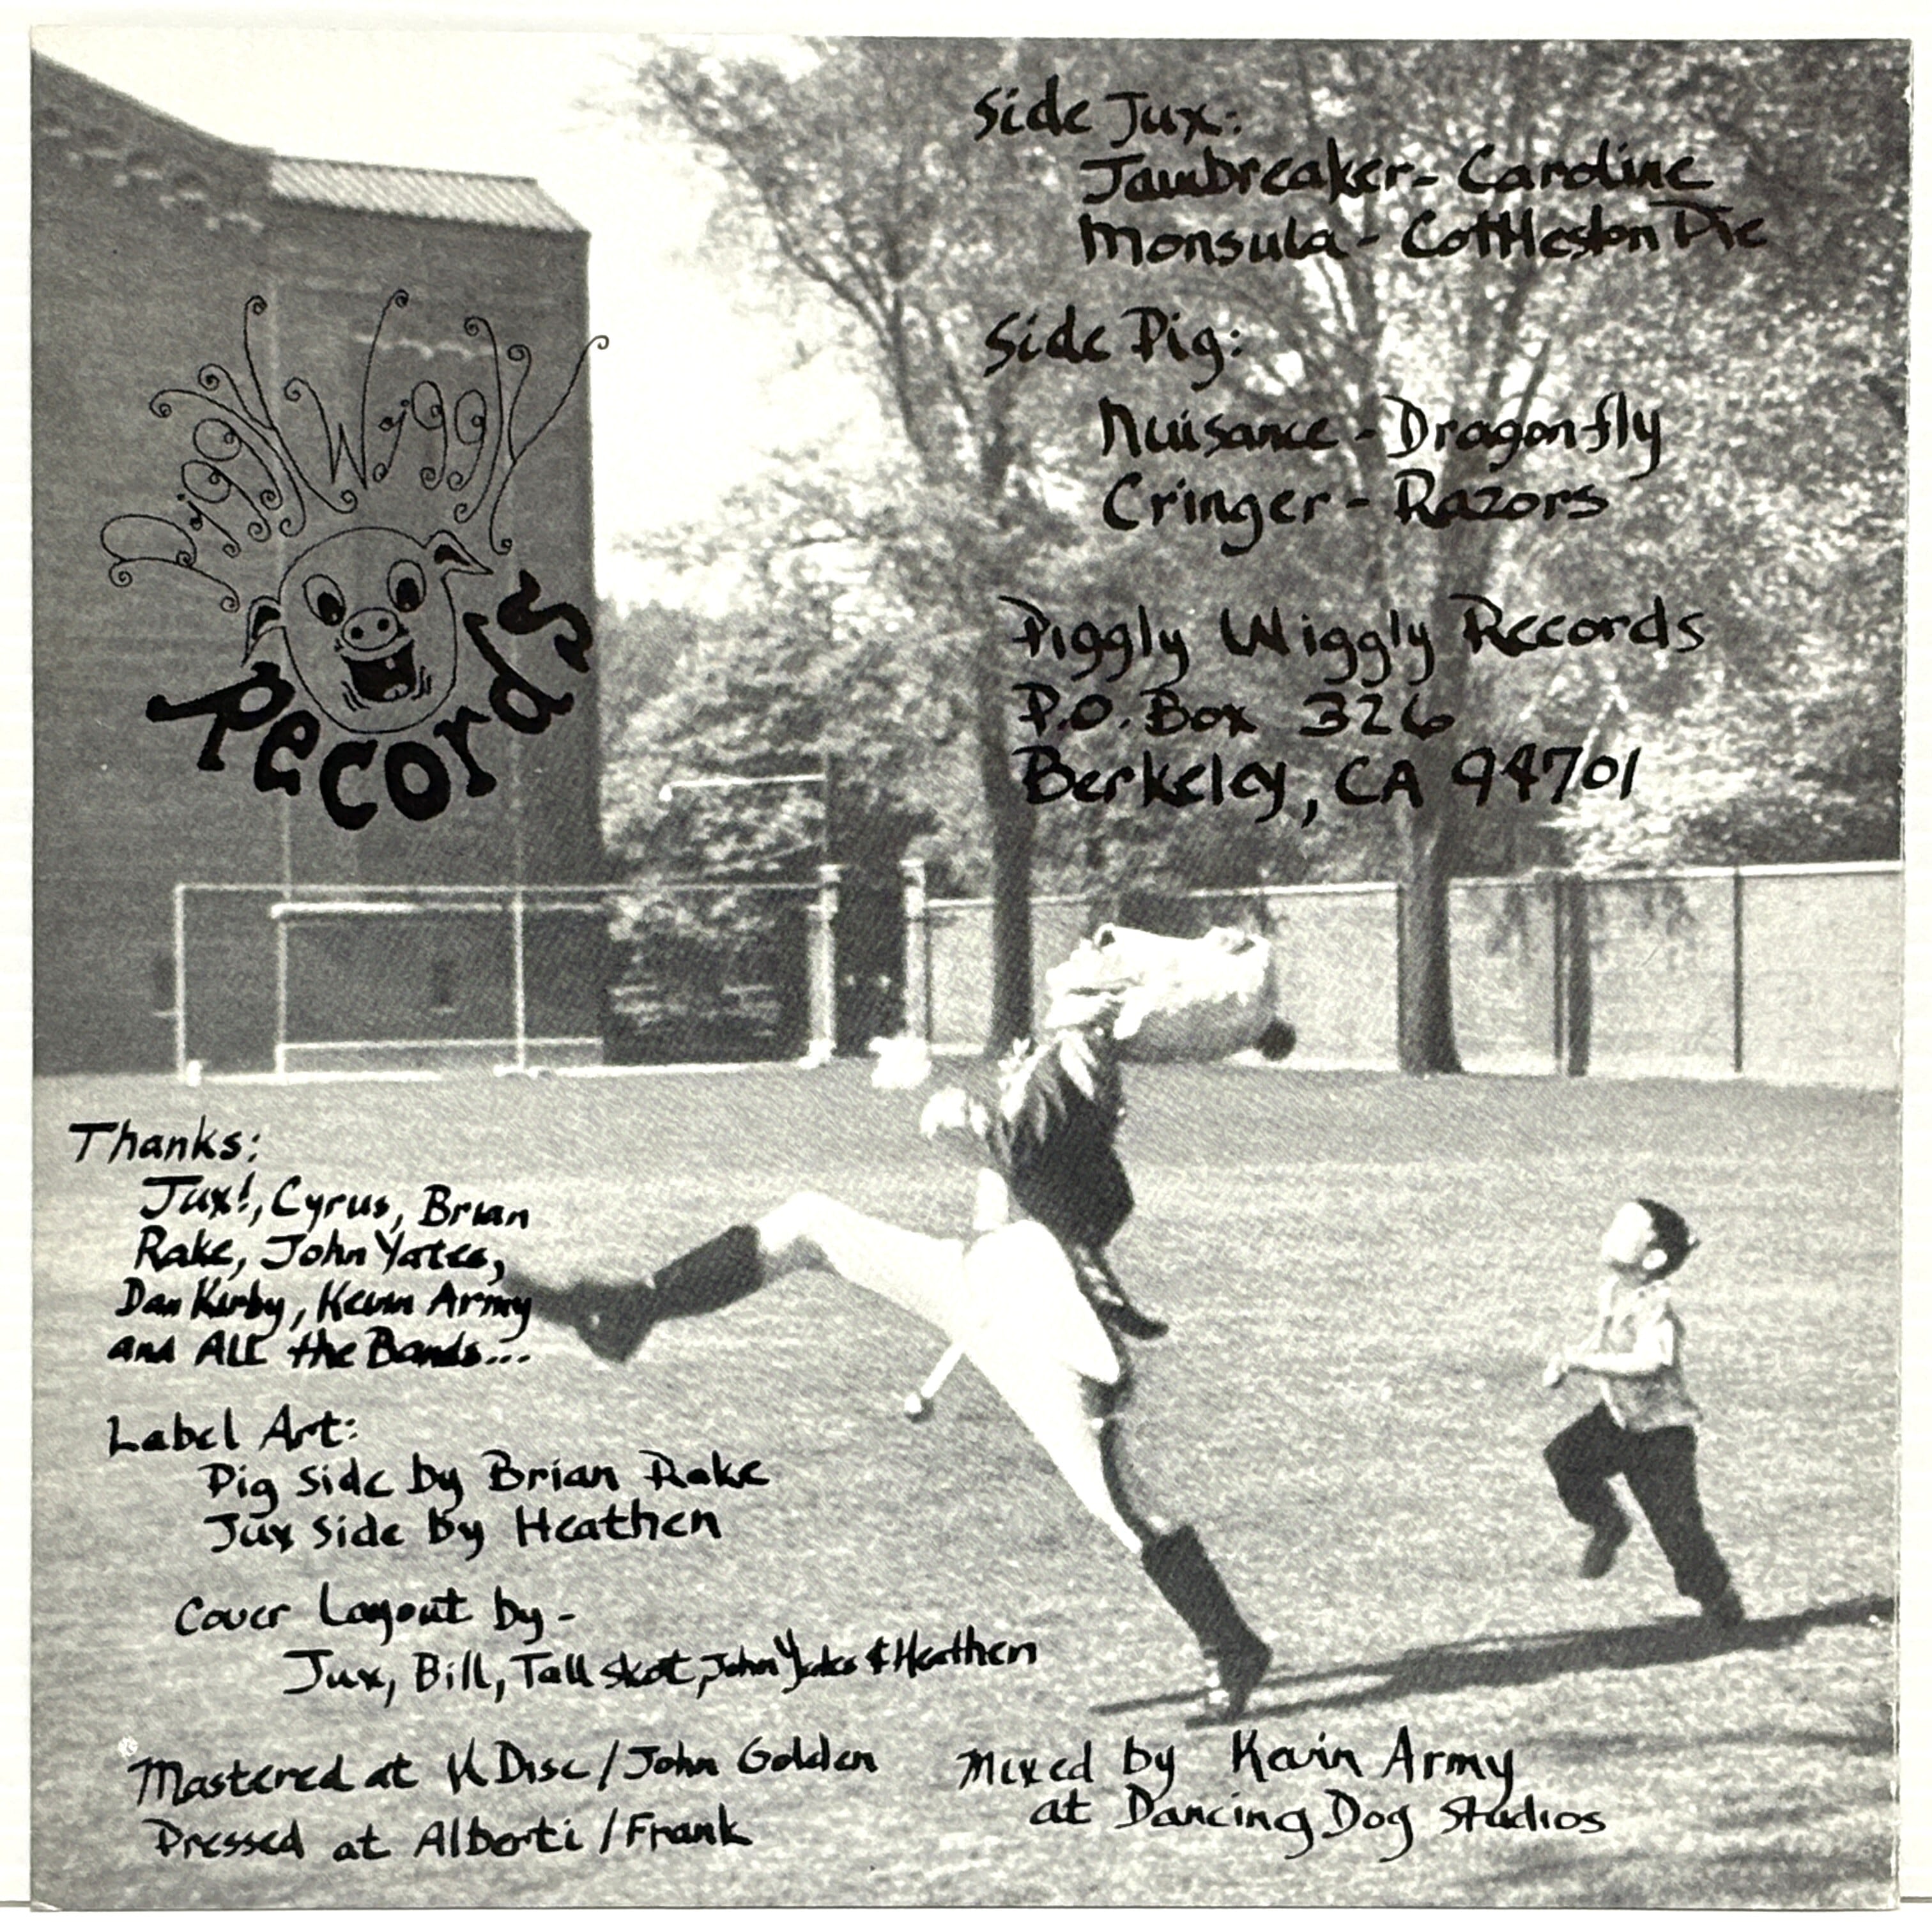 Side Jux:
Jawbreaker- Caroline
Monsula - Cottleston Pie
Side Pig:
Nuisance - Dragonfly
Cringer - Razors
Piggly Wiggly Records
P.O. Box 326
Berkeley, CA 94701
Piggly Wiggly
Records
Thanks:
Jux!, Cyrus, Brian
Rake, John Yates,
Dan Kirby, Kevin Army
and ALL the Bands...
Label Art:
Pig Side by Brian Rake
Jux Side by Heathen
Cover Layout by -
Jux, Bill, Tall Skot, John Yates & Heathen
Mastered at K Disc / John Golden
Pressed at Alberti / Frank
Mixed by Kevin Army
at Dancing Dog Studios